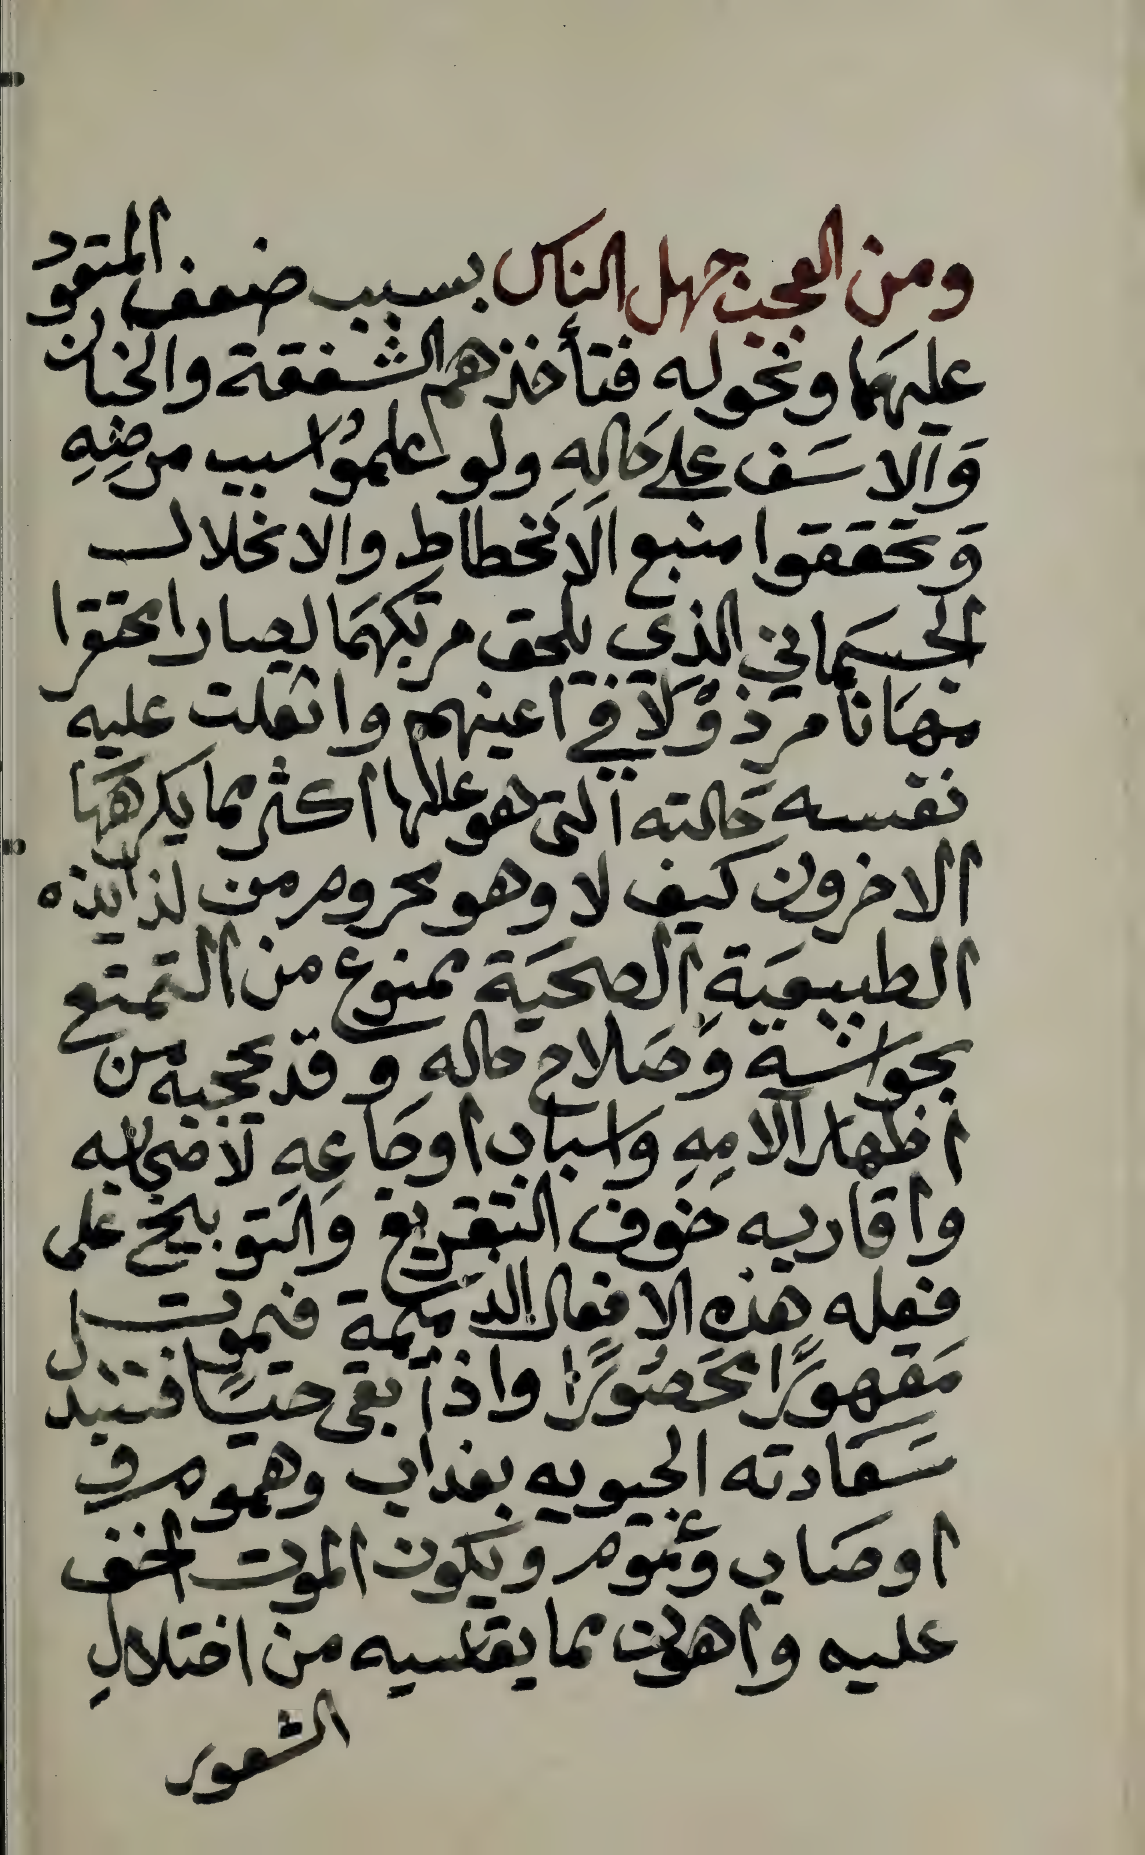 ومن العجب جهل الناس بسبب ضعف المتعود
عليهما ونحوله فتأخذهم الشفقة والحنان
وَالاسَف على حَالهِ ولو علموُا سبب مرضِهِ
وَتحققوا منبع الاِنحطاط والانحلال
الجسمَاني الذي يلحق مرتكبهمَا لصار محتقرا
مُهَانًا مرذوْلاً في اعينهم واثقلت عليه
نفسه حَالته التي هو عللها اكثر مما يكرههَا
الاخرون كيف لا وهو محروم من لذايذه
الطبيعيَة الصحيَة ممنوع من التمتع
بحواسه وصَلاح حاله وقد يحجبه من
اظهار الامهِ وَاسباب اوجَاعِهِ لاصحابه
واقاربه خَوف التقريع وَالتوبيخ على
فعله هذه الافعال الذميمة فيموت
مَقهورًا محَصُورًا واذا بقى حيًا فتتبدل
سَعَادته الحيويه بعذاب وهموم في
اوصَاب وغموم ويكون الموت اخف
عليه واهون مما يقاسيه من اختلالِ
الشعور